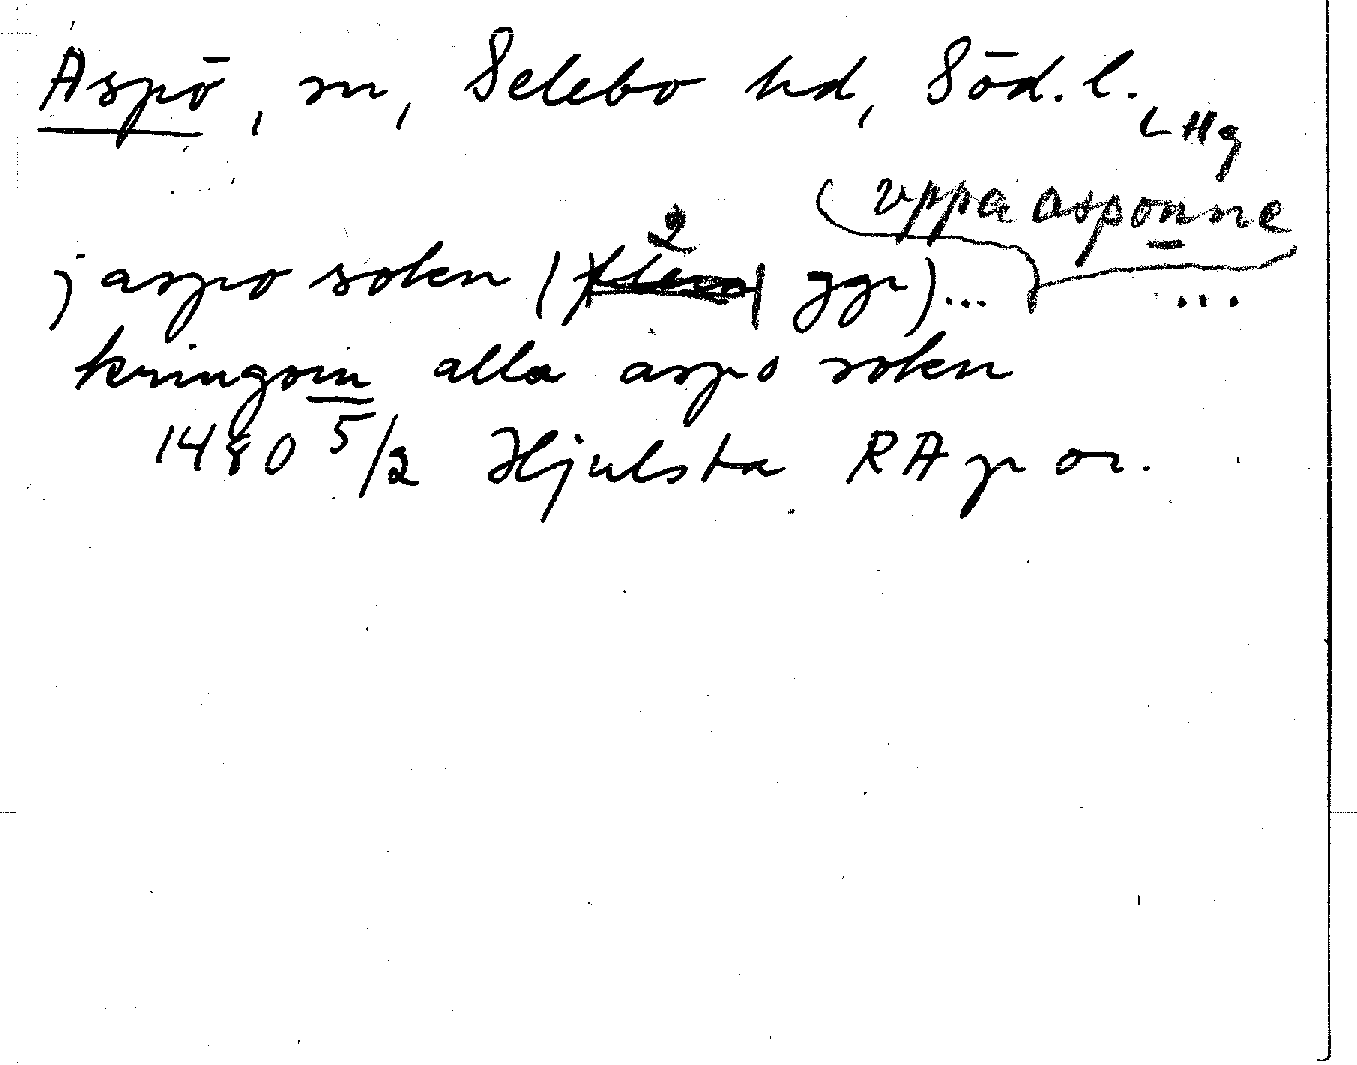 Aspö, sn, Selebo hd, Söd. l.
vppa asponne
j aspo sokn (2 ggr)... ...
kringom alla aspo sokn
1480 5/2 Hjulsta RAp or.